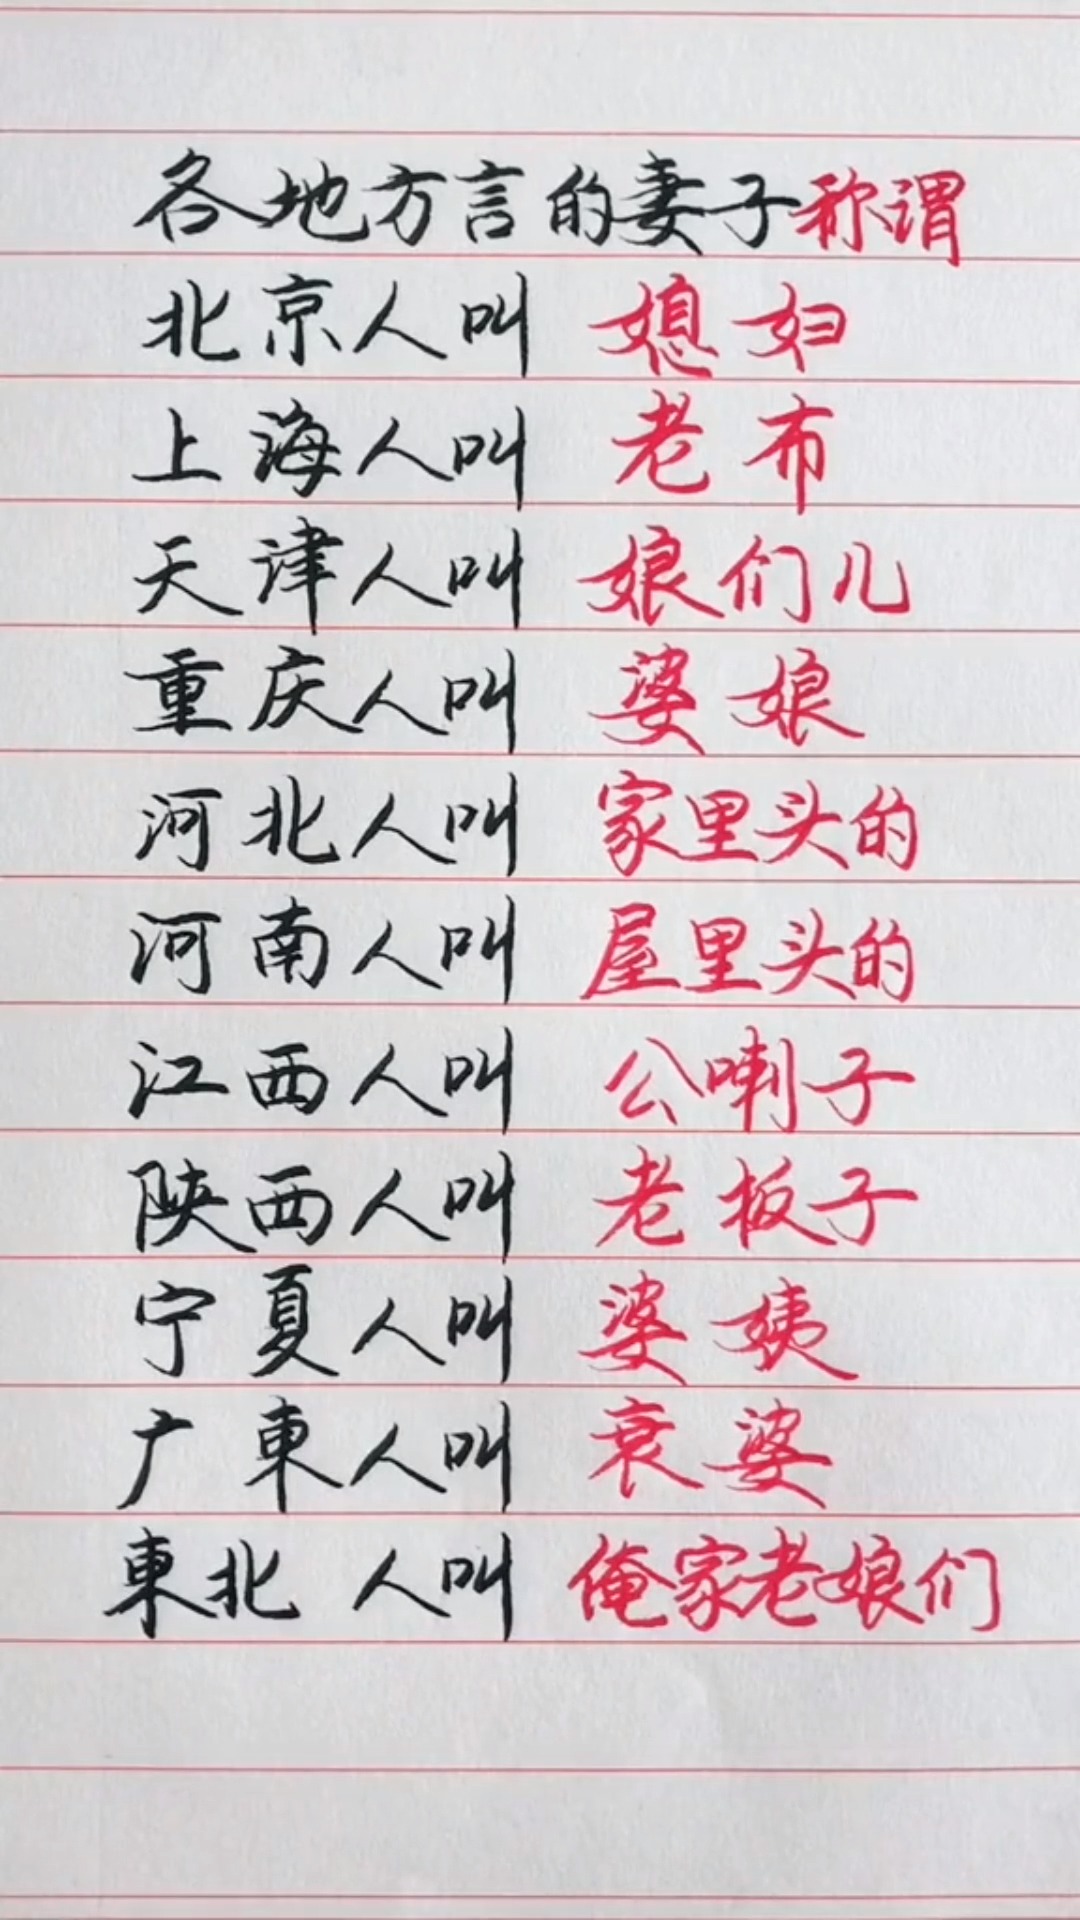 各地方言的妻子称谓
北京人叫 媳妇
上海人叫 老布
天津人叫 娘们儿
重庆人叫 婆娘
河北人叫 家里头的
河南人叫 屋里头的
江西人叫 公喇子
陕西人叫 老板子
宁夏人叫 婆姨
广東人叫 衰婆
東北人叫 俺家老娘们